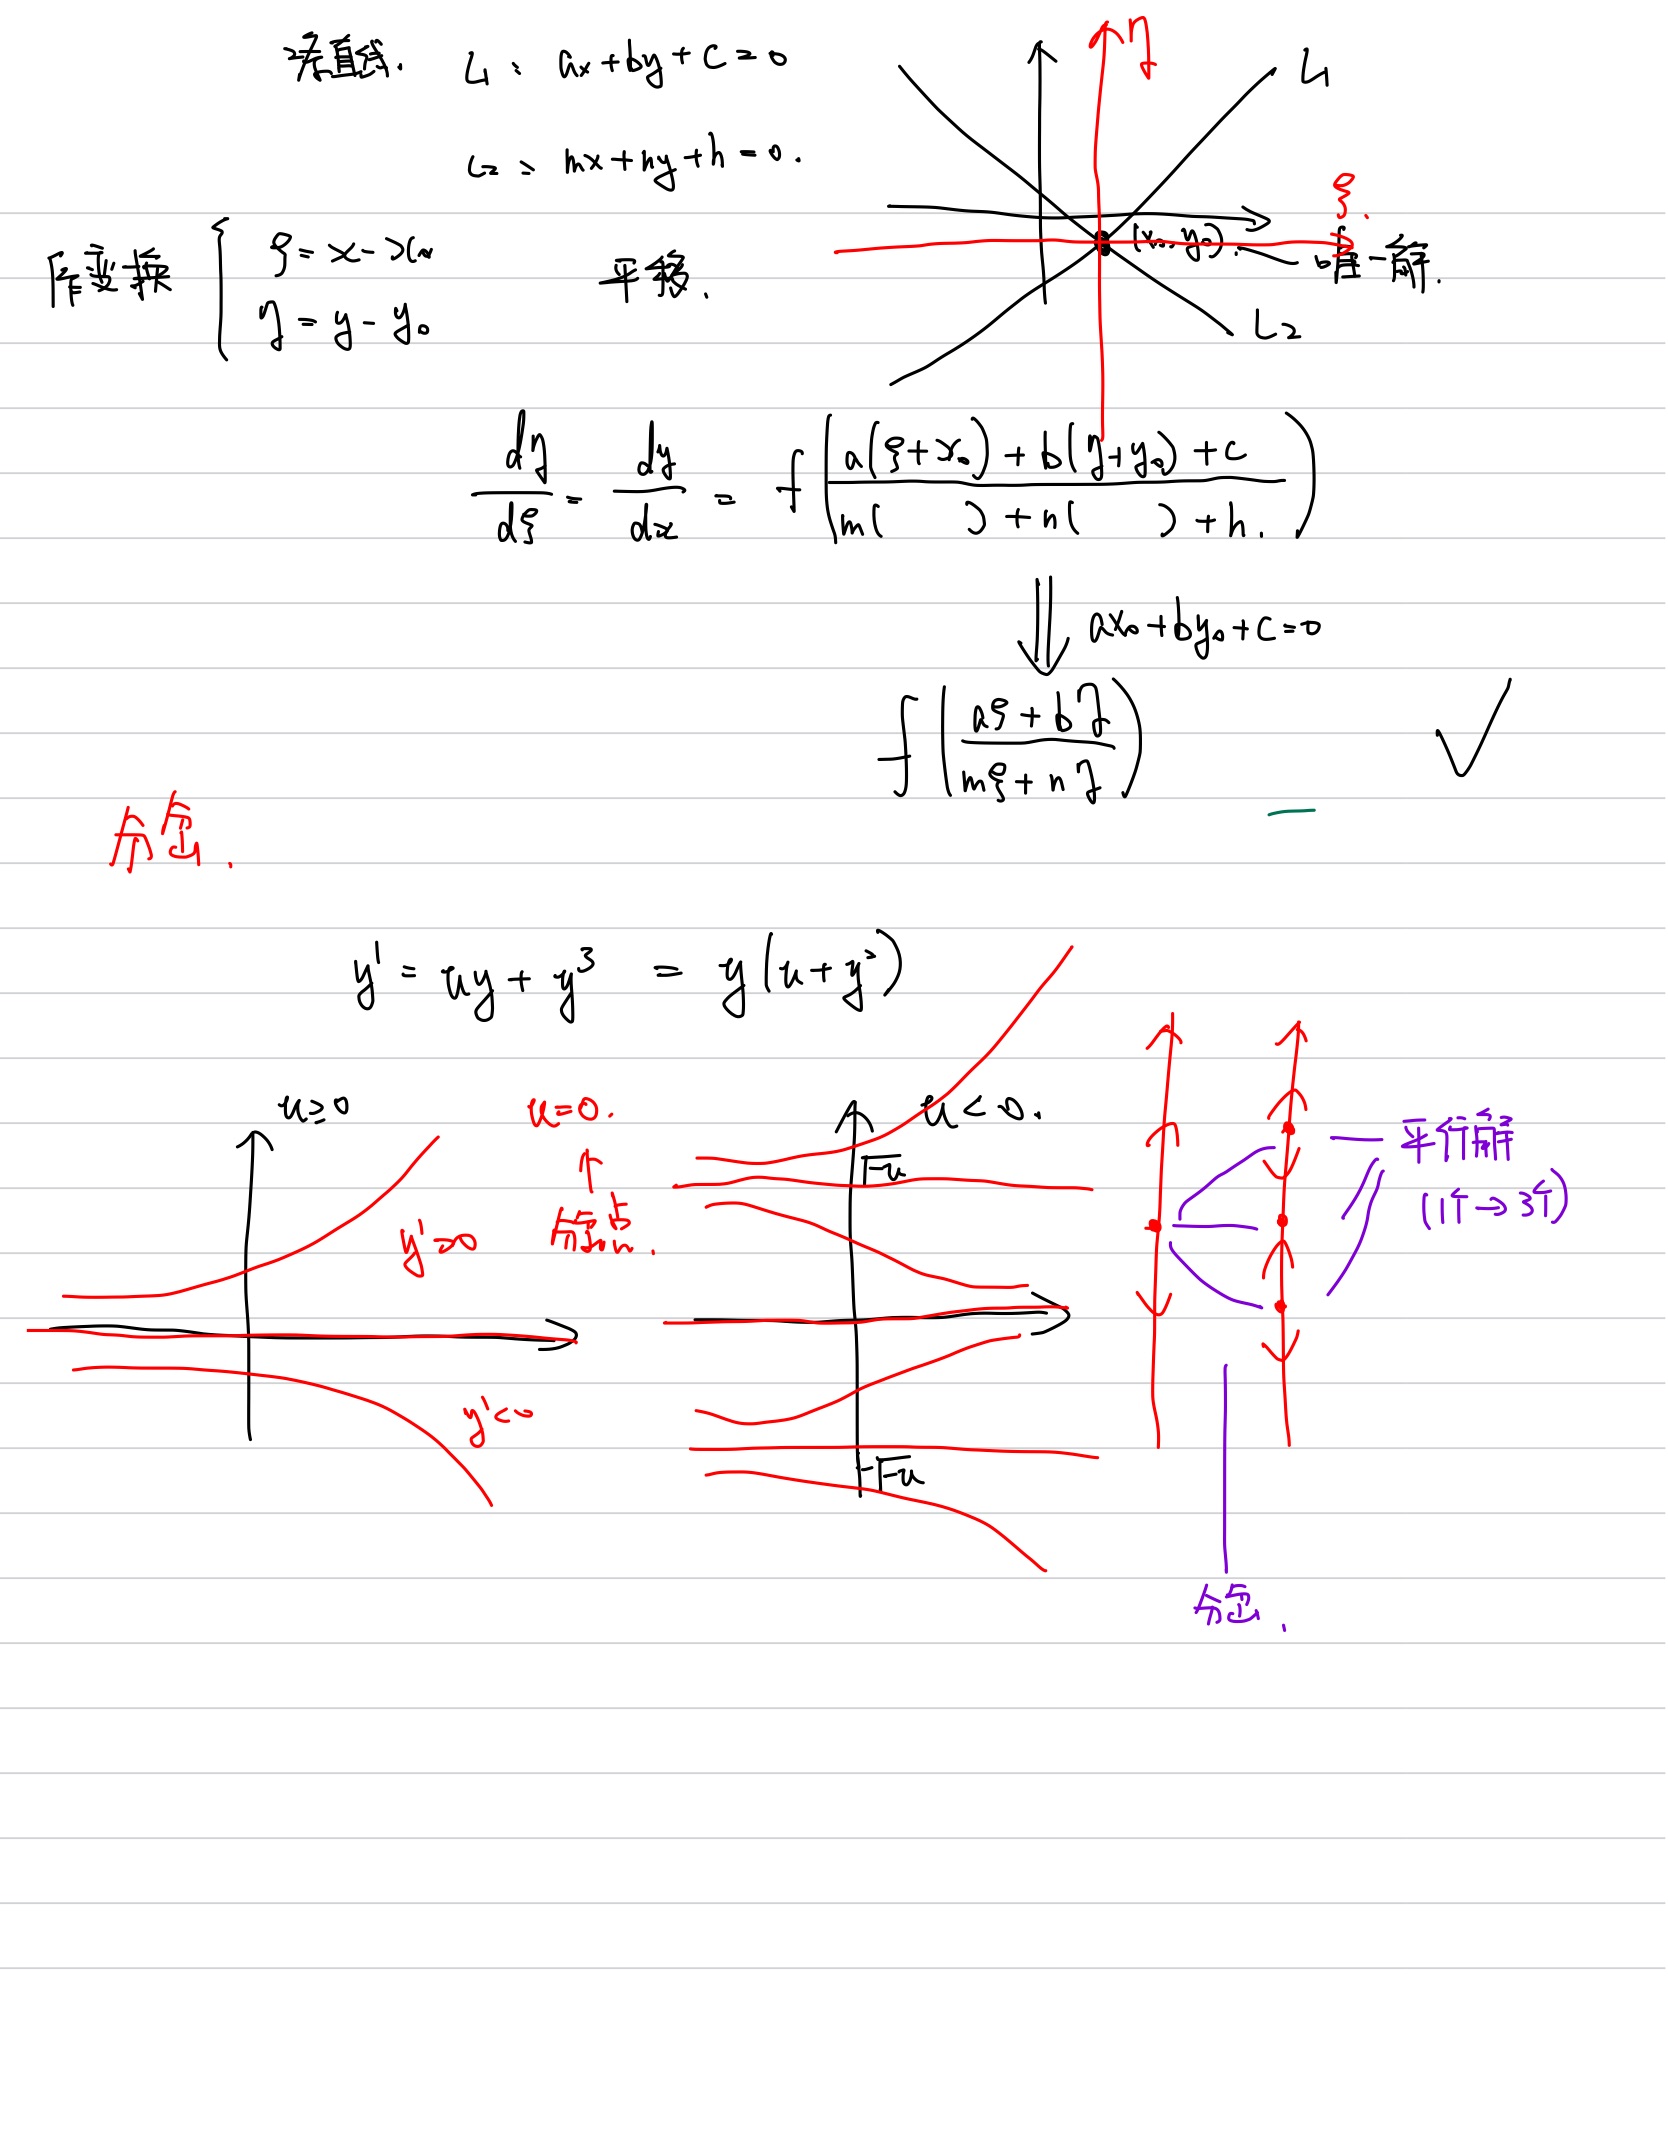 考直线. L₁: ax+by+c=0
L₂: mx+ny+h=0.
作变换 { ξ=x-x₀
η=y-y₀
平移.
η
L₁
ξ.
(x₀,y₀).
唯一解.
L₂
dη/dξ = dy/dx = f( (a(ξ+x₀)+b(η+y₀)+c) / (m( )+n( )+h.) )
ax₀+by₀+c=0
f( (aξ+bη) / (mξ+nη) )
分岔.
y' = uy+y³ = y(u+y²)
u≥0
u=0.
分岔点.
y'>0
y'<0
u<0.
√-u
-√-u
平行解
(1个→3个)
分岔.